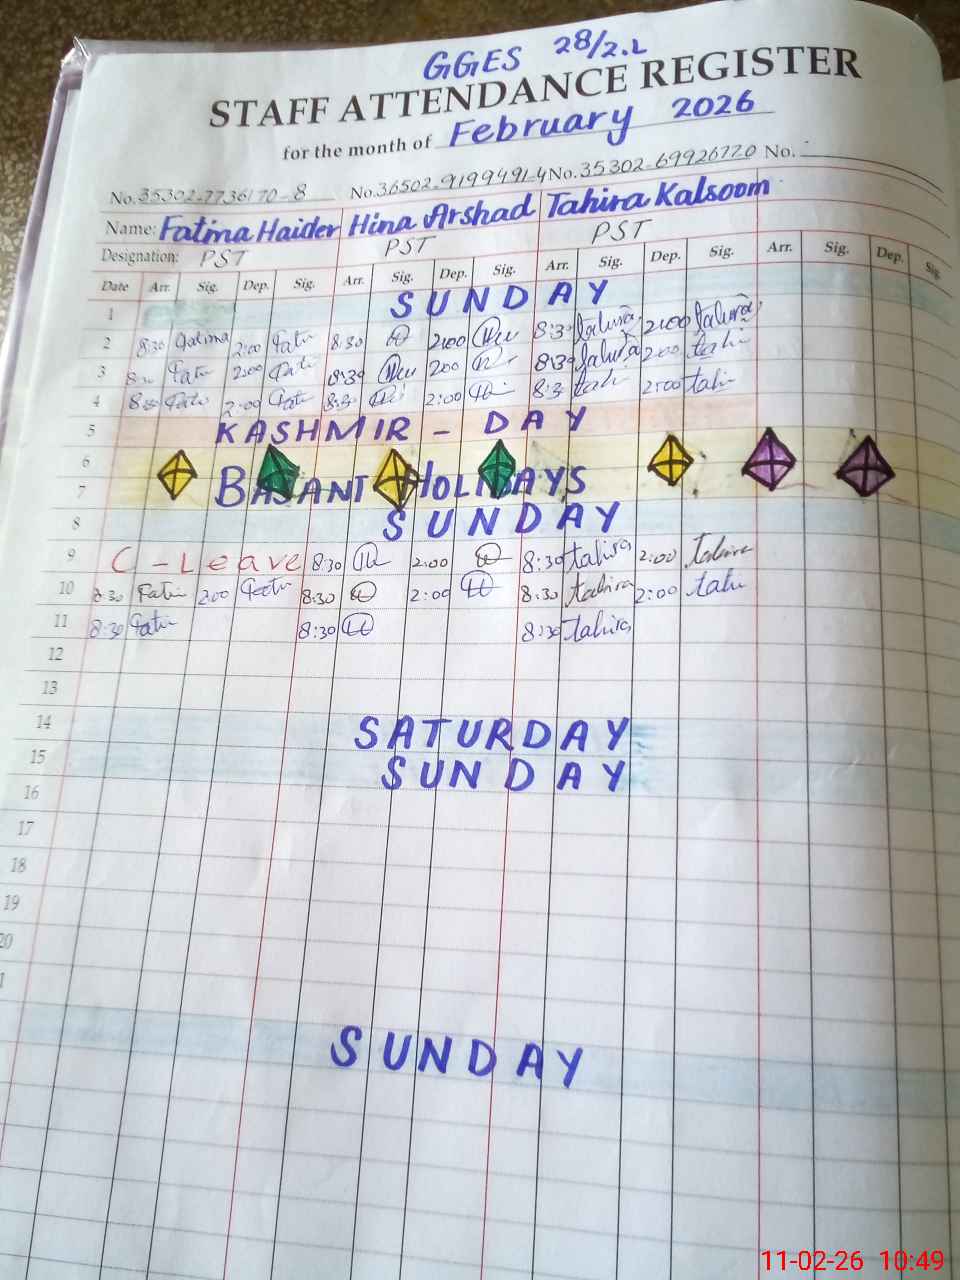 GGES 28/2.L
STAFF ATTENDANCE REGISTER
for the month of February 2026
No. 35302-7736170-8 No. 36502-9199491-4 No. 35302-69926720 No.
Name: Fatima Haider Hina Arshad Tahira Kalsoom
Designation: PST PST PST
Date Arr. Sig. Dep. Sig. Arr. Sig. Dep. Sig. Arr. Sig. Dep. Sig. Arr. Sig. Dep. Sig.
1 SUNDAY
2 8:30 Fatima 2:00 Fati 8:30 2:00 8:30 Tahira 2:00 Tahira
3 8:30 Fati 2:00 Fati 8:30 200 8:30 Tahira 2:00 tahi
4 8:30 Fati 2:00 Fati 8:30 2:00 8:3 tahi 2:00 tahi
5 KASHMIR - DAY
6
7 BASANT HOLIDAYS
8 SUNDAY
9 C-Leave 8:30 2:00 8:30 tahira 2:00 Tahira
10 8:30 Fati 2:00 Fati 8:30 2:00 8:30 tahira 2:00 tahi
11 8:30 Fati 8:30 8:30 tahira
12
13
14 SATURDAY
15 SUNDAY
16
17
18
19
20
1
SUNDAY
11-02-26 10:49